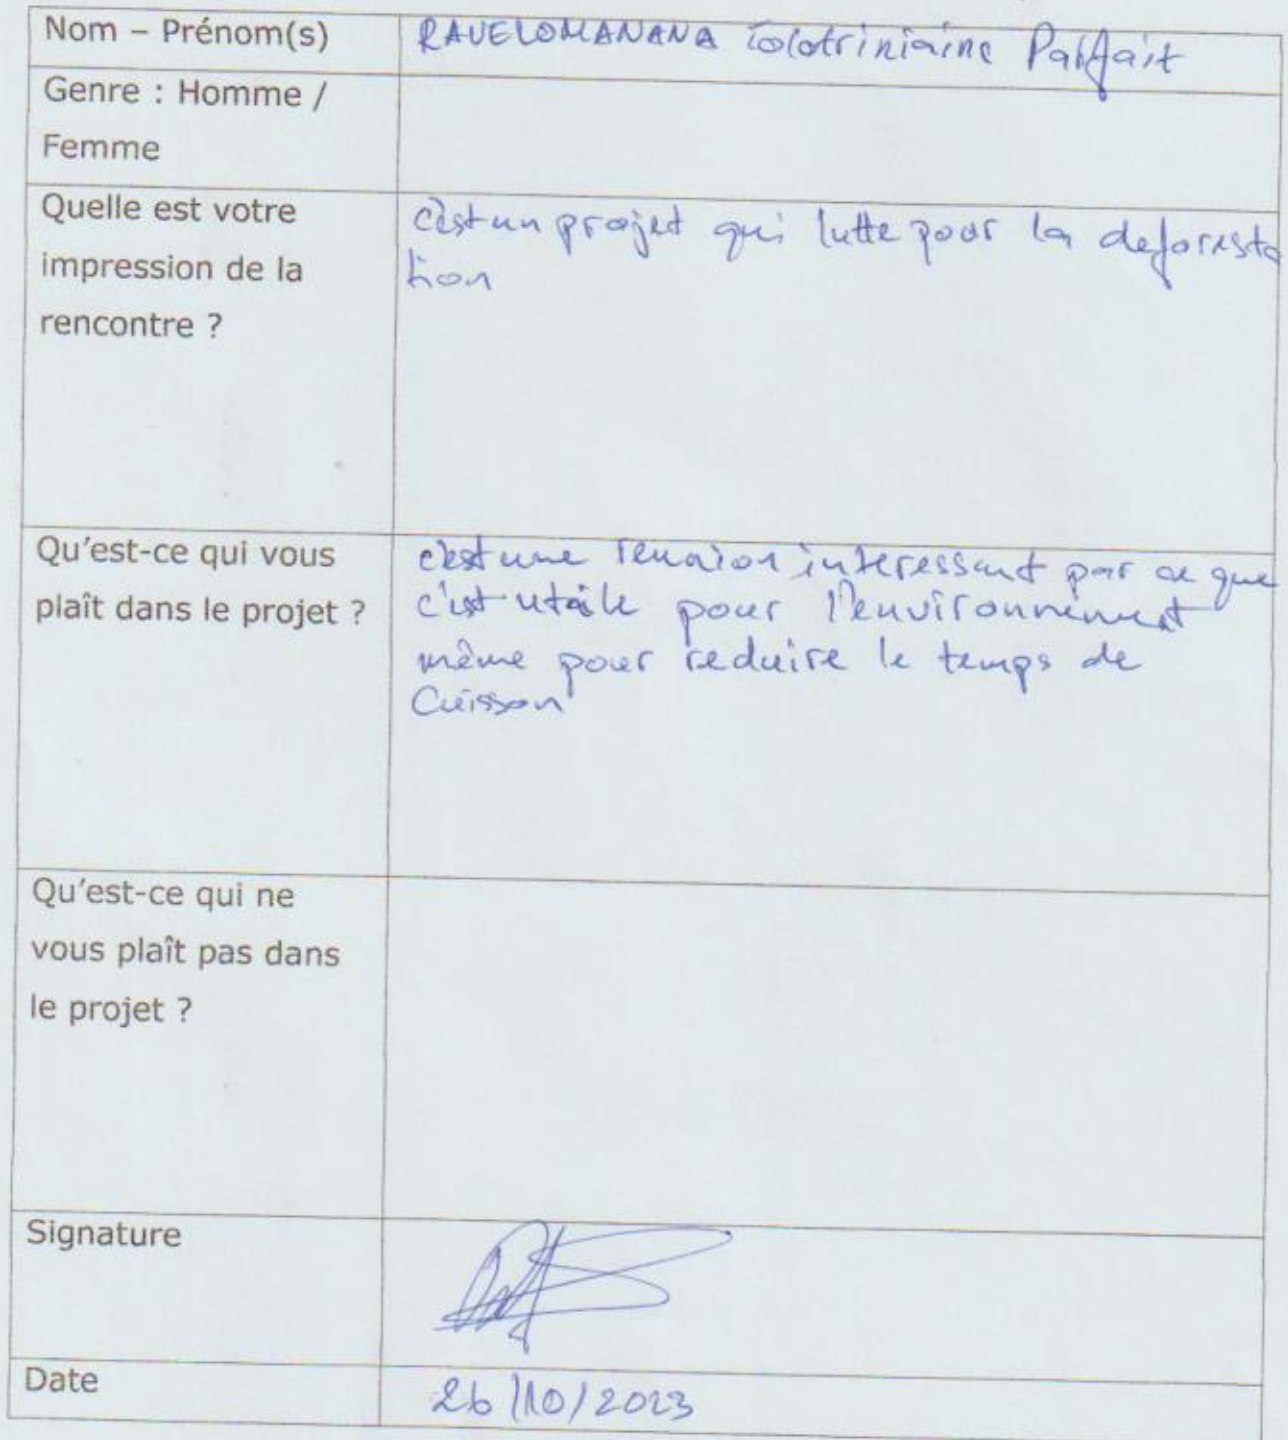 Nom – Prénom(s) RAVELOMANANA Tolotriniaina Parfait
Genre : Homme /
Femme
Quelle est votre
impression de la
rencontre ?
c'est un projet qui lutte pour la deforesta
tion
Qu'est-ce qui vous
plaît dans le projet ?
c'est une reunion interessant par ce que
c'est utile pour l'environnement
même pour reduire le temps de
Cuisson
Qu'est-ce qui ne
vous plaît pas dans
le projet ?
Signature
Date 26/10/2023